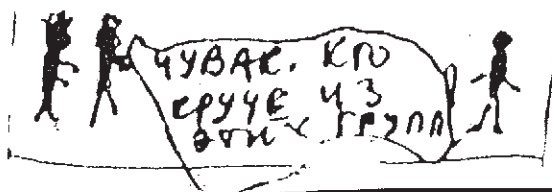 ЧУВАК, КТО
КРУЧЕ ИЗ
ЭТИХ ГРУПП